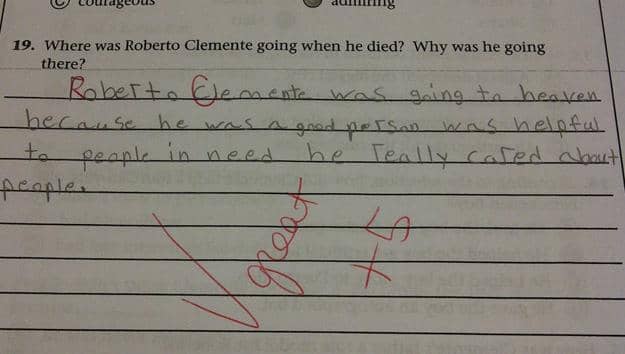 C courageous
admiring
19. Where was Roberto Clemente going when he died? Why was he going
there?
Roberto Clemente was going to heaven
because he was a good person was helpful
to people in need he really cared about
people.
great
+5